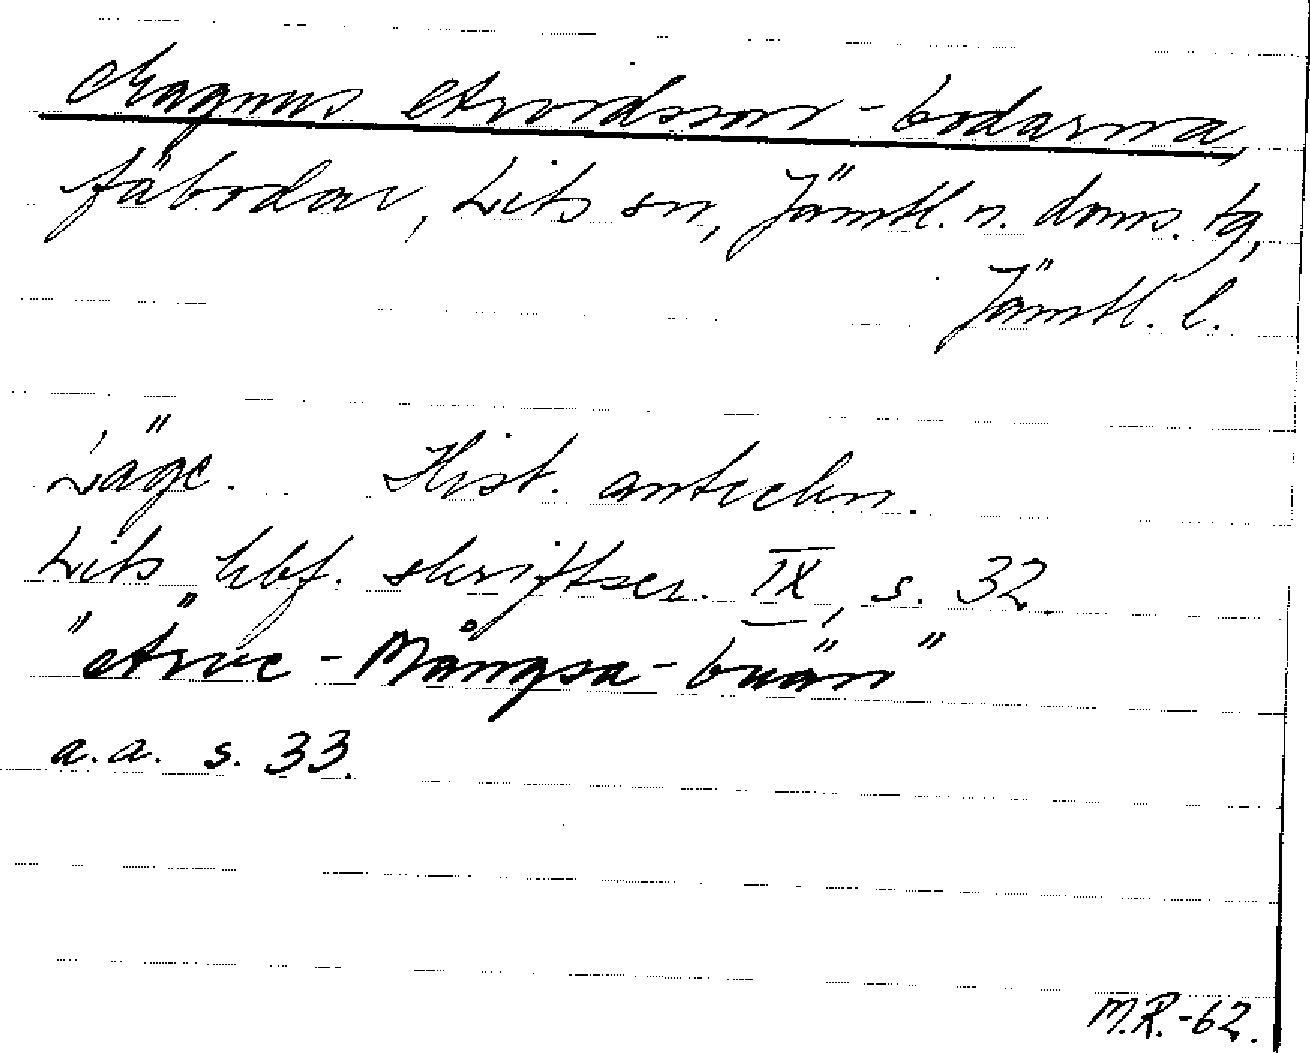 Magnus Arvidsson-bodarna,
fäbodar, Lits sn, Jämtl. n. doms. tg,
Jämtl. l.
Läge. Hist. anteckn.
Lits hbf. skriftser. IX, s. 32.
"Arve-Mångsa-buän"
a.a. s. 33.
M.R.-62.